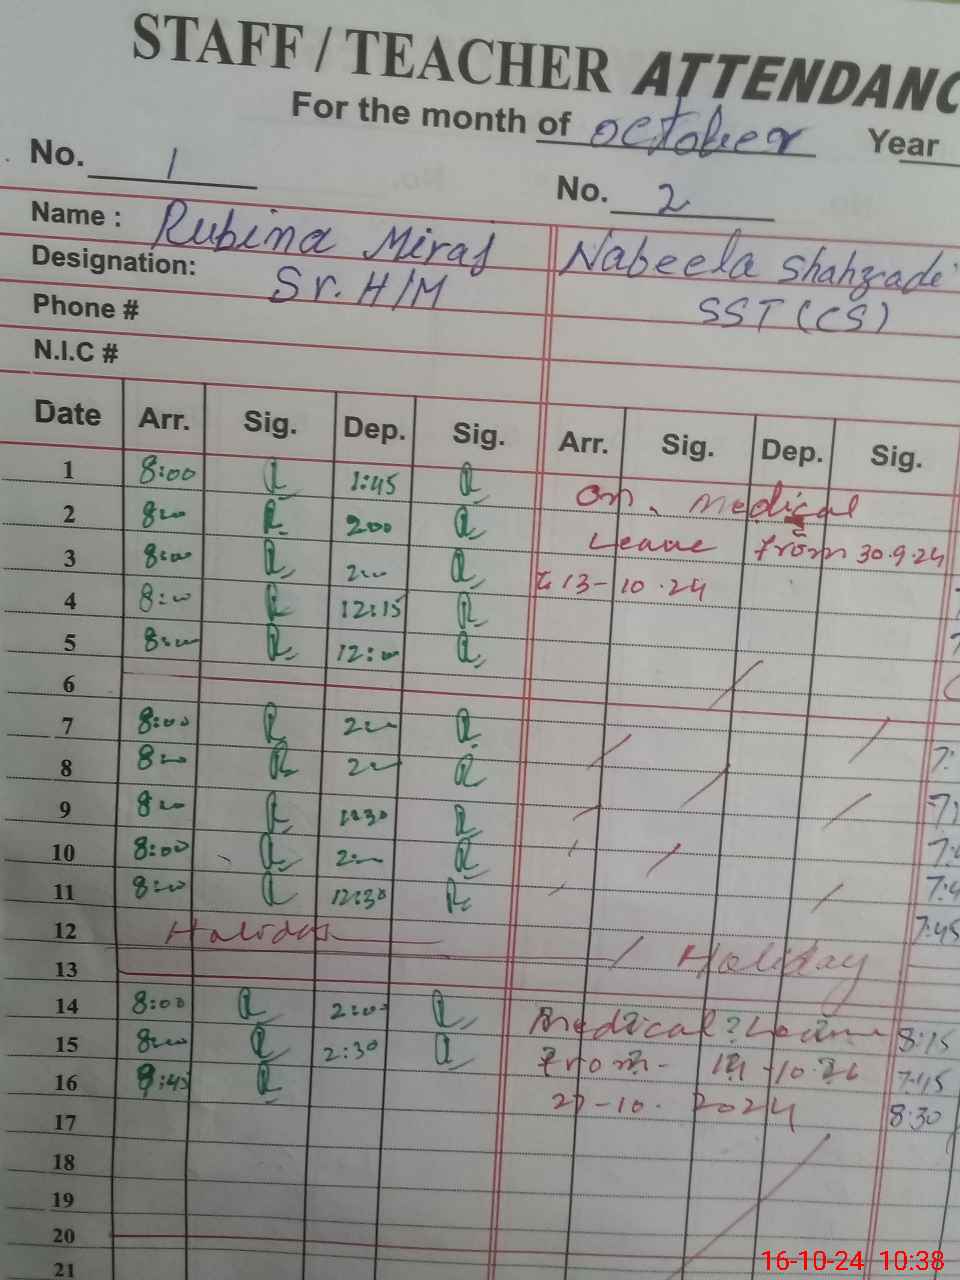 STAFF / TEACHER ATTENDANC
For the month of October Year
No. 1 No. 2
Name : Rubina Miraj Nabeela Shahzadi
Designation: Sr. H/M SST (CS)
Phone #
N.I.C #
Date Arr. Sig. Dep. Sig. Arr. Sig. Dep. Sig.
1 8:00 R 1:45 R On Medical
2 800 R 200 R Leave from 30.9.24
3 8:00 R 200 R 13-10.24
4 8:00 R 12:15 R
5 8:00 R 12:00 R
6
7 8:00 R 200 R
8 800 R 200 R 7:
9 800 R R 7:
10 8:00 R 200 R 7:4
11 800 R 12:30 R 7:4
12 Holiday 7:45
13 Holiday
14 8:00 R 2:00 R Medical Leave 8:15
15 800 R 2:30 R From 7:45
16 9:45 R 27-10. 2024 8:30
17
18
19
20
21
16-10-24 10:38